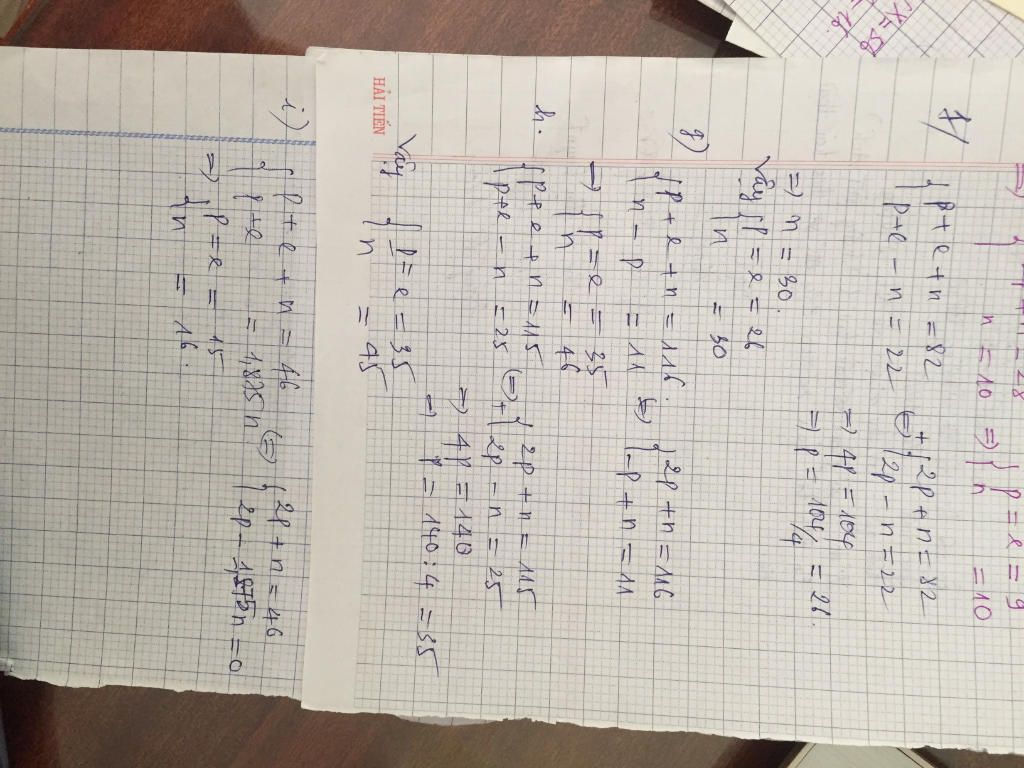 n = 10 => { p = e = 9
n = 10
f) { p + e + n = 82
{ p + e - n = 22 <=> + { 2p + n = 82
{ 2p - n = 22
=> 4p = 104
=> p = 104/4 = 26.
=> n = 30.
Vậy { p = e = 26
{ n = 30
g) { p + e + n = 116.
{ n - p = 11 <=> { 2p + n = 116
{ -p + n = 11
=> { p = e = 35
{ n = 46
h. { p + e + n = 115
{ p + e - n = 25 <=> + { 2p + n = 115
{ 2p - n = 25
=> 4p = 140
=> p = 140 : 4 = 35
Vậy { p = e = 35
{ n = 45
HẢI TIẾN
i) { p + e + n = 46
{ p + e = 1,875n <=> { 2p + n = 46
{ 2p - 1,875n = 0
=> { p = e = 15
{ n = 16.